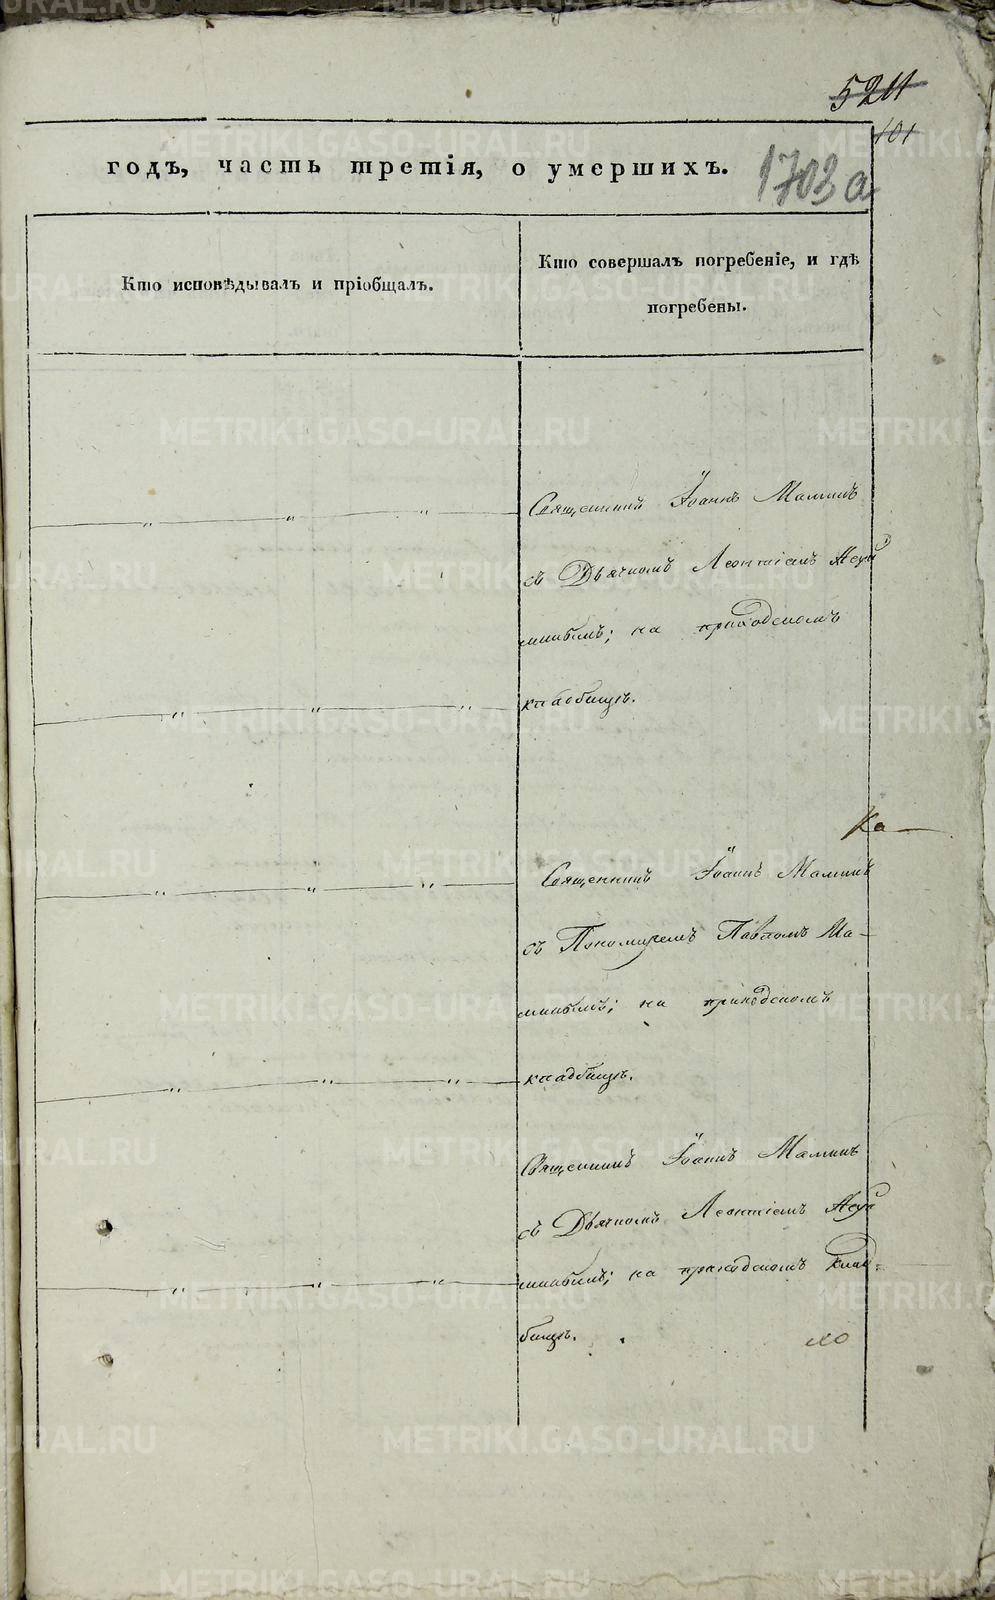 5211
101
годъ, часть третія, о умершихъ.
1703а
Кто исповѣдывалъ и пріобщалъ.
Кто совершалъ погребеніе, и гдѣ
погребены.
Священникъ Іоаннъ Маминъ
съ Дьячкомъ Леонтіемъ
на приходскомъ
кладбищѣ.
Ка—
Священникъ Іоаннъ Маминъ
съ Пономаремъ Павломъ Ма-
минымъ; на приходскомъ
кладбищѣ.
Священникъ Іоаннъ Маминъ
съ Дьячкомъ Леонтіемъ
на приходскомъ клад-
бищѣ.
METRIKI.GASO-URAL.RU